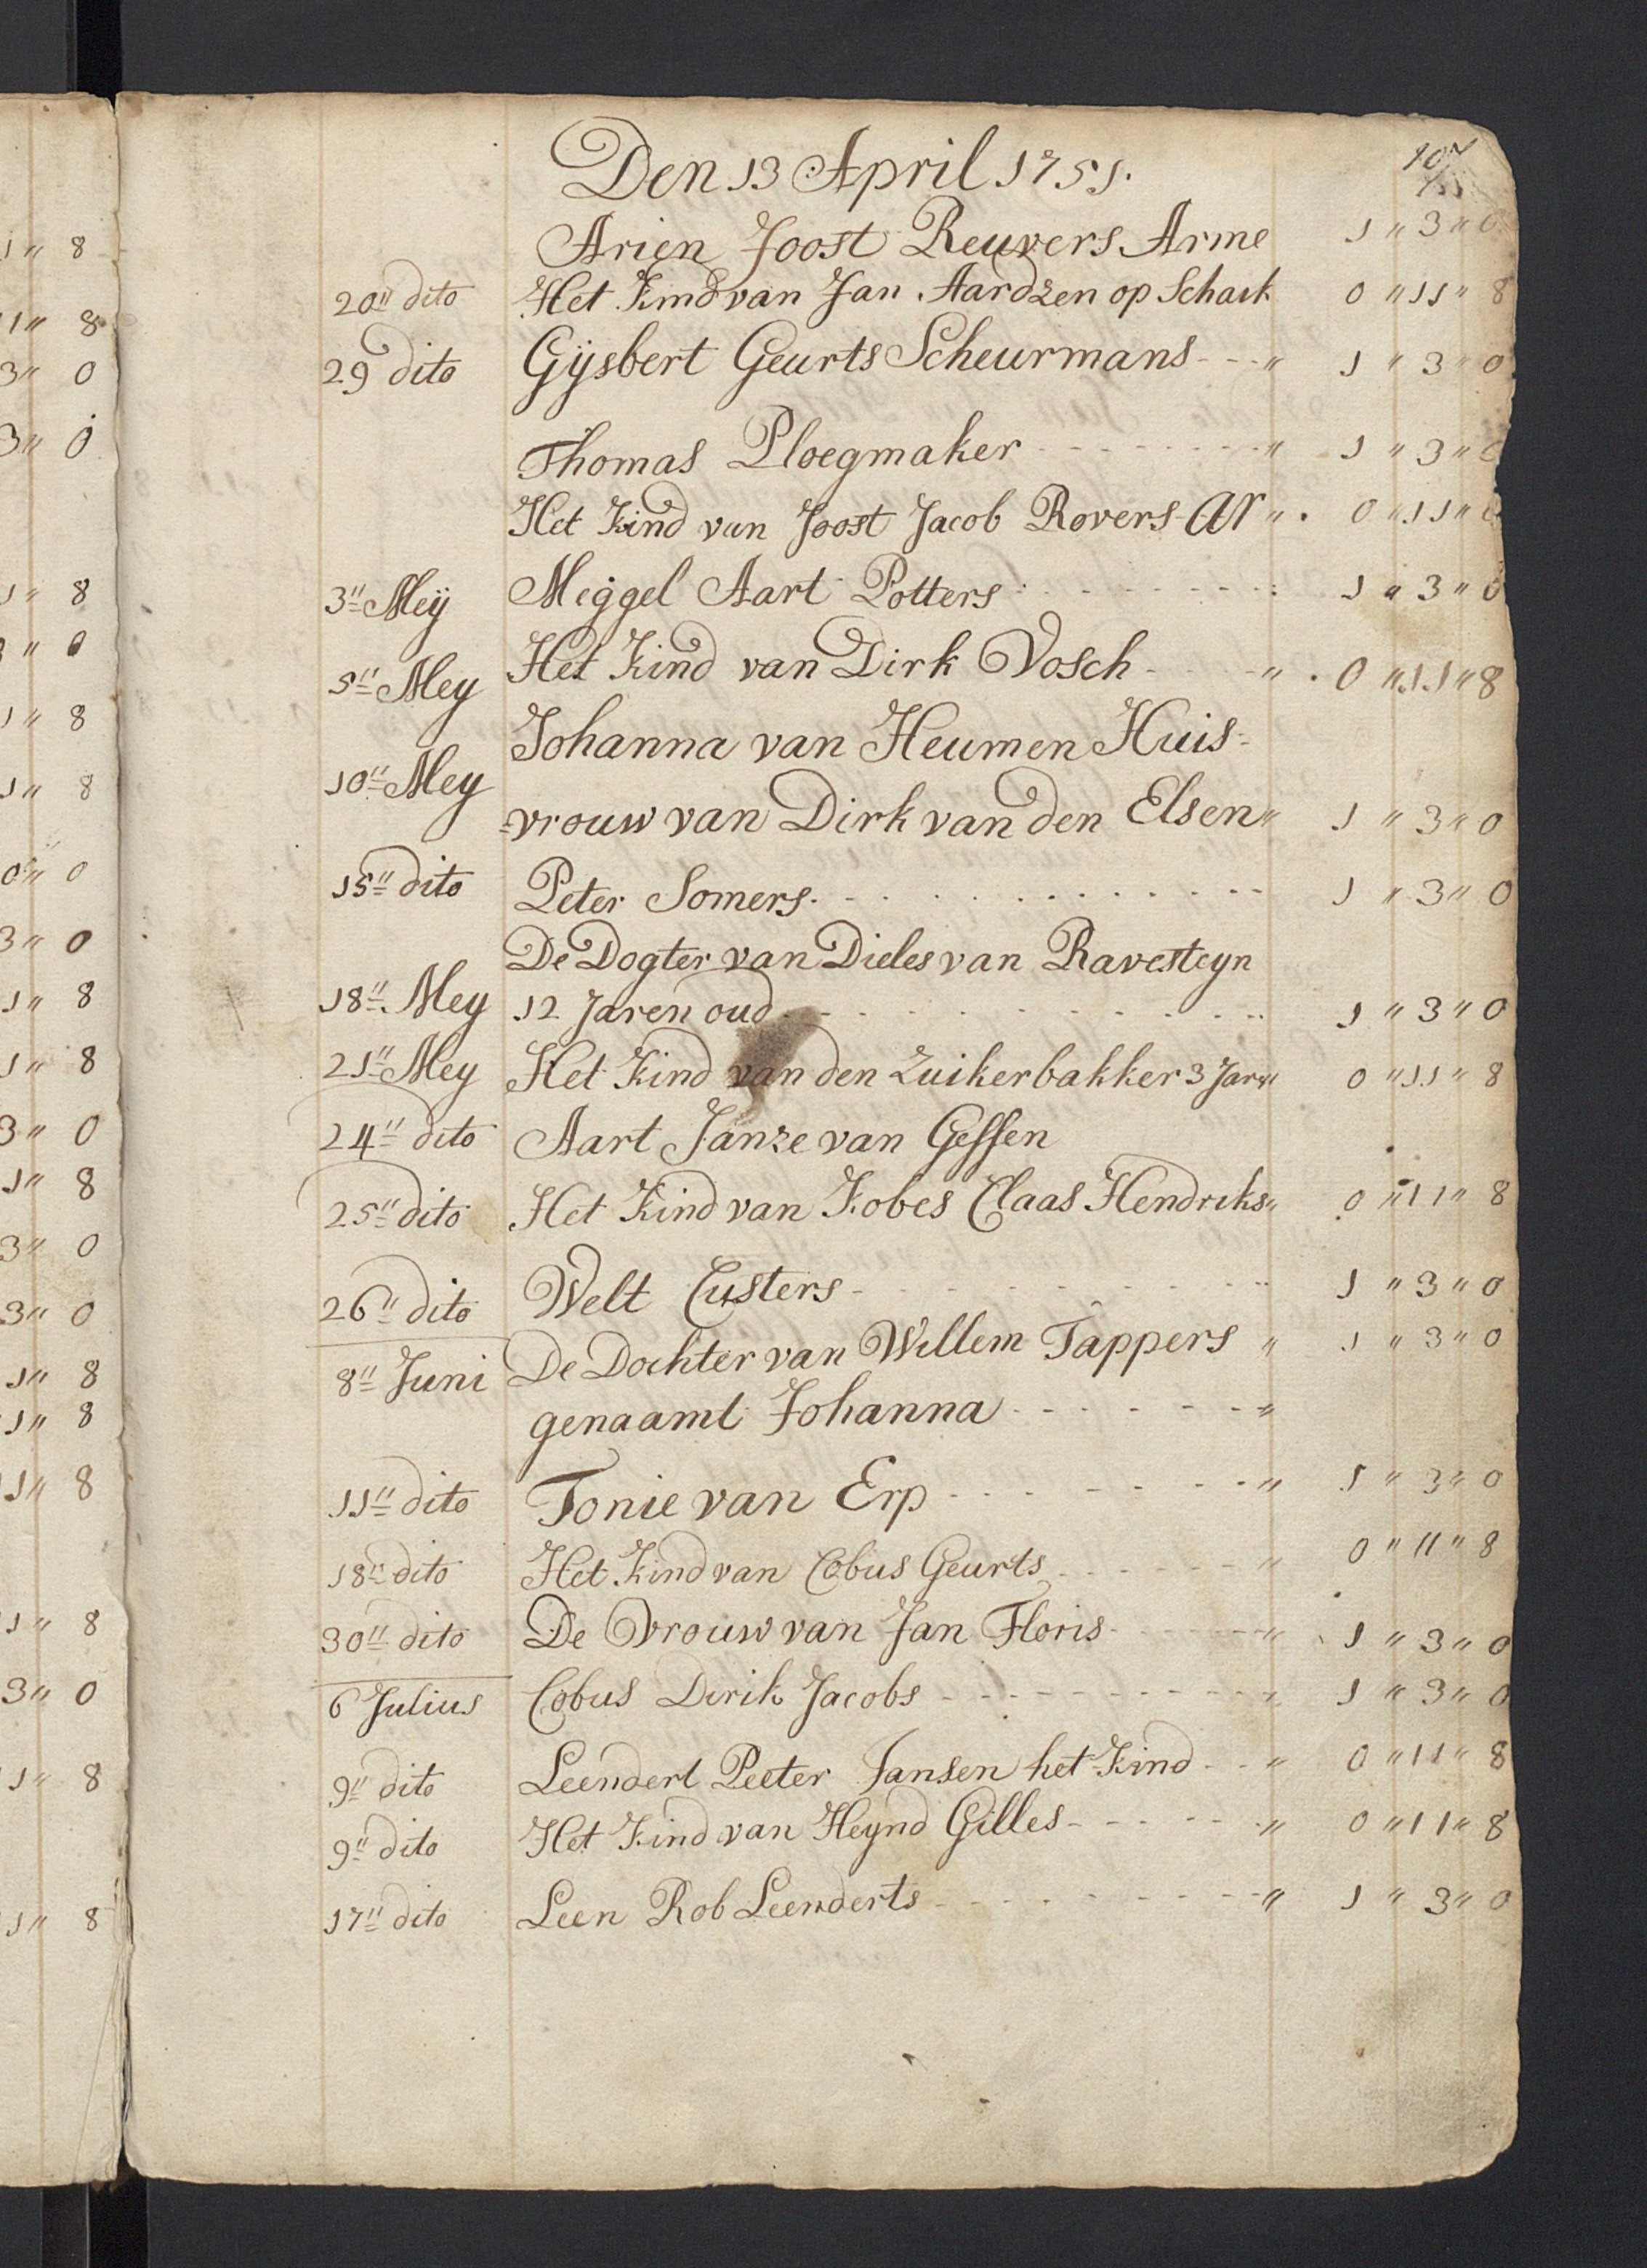 1 " 8
1 " 8
3 " 0
3 " 0
1 " 8
3 " 0
1 " 8
1 " 8
0 " 0
3 " 0
1 " 8
1 " 8
3 " 0
1 " 8
3 " 0
3 " 0
1 " 8
1 " 8
1 " 8
1 " 8
3 " 0
1 " 8
1 " 8
107
Den 13 April 1751.
Arien Joost Reuvers Arme 1 " 3 " 0
20" dito Het Kind van Jan Aardzen op Schaik 0 " 11 " 8
29 dito Gijsbert Geurts Scheurmans - - - " 1 " 3 " 0
Thomas Ploegmaker - - - - - - - - " 1 " 3 " 0
Het Kind van Joost Jacob Rovers Ar " . 0 " 11 "
3" Meij Meggel Aart Potters - - - - - - - - 1 " 3 " 0
5" Mey Het Kind van Dirk Vosch - - - " . 0 " 11 " 8
10" Mey Johanna van Heumen Huis-
=vrouw van Dirk van den Elsen " 1 " 3 " 0
15" dito Peter Somers - - - - - - - - - - 1 " 3 " 0
De Dogter van Dieles van Ravesteyn
18" Mey 12 Jaren oud - - - - - - - - - - 1 " 3 " 0
21" Mey Het Kind van den Zuikerbakker 3 Jar " 0 " 11 " 8
24" dito Aart Janze van Geffen
25" dito Het Kind van Kobes Claas Hendriks " 0 " 11 " 8
26" dito Welt Custers - - - - - - - - - 1 " 3 " 0
8" Juni De Dochter van Willem Tappers " 1 " 3 " 0
genaamt Johanna - - - - - - - "
11" dito Tonie van Erp - - - - - - - - " 1 " 3 " 0
18" dito Het Kind van Cobus Geurts - - - - - " 0 " 11 " 8
30" dito De Vrouw van Jan Floris - - - - - " 1 " 3 " 0
6 Julius Cobus Dirik Jacobs - - - - - - - - - - " 1 " 3 " 0
9" dito Leendert Peeter Jansen het Kind - - " 0 " 11 " 8
9" dito Het Kind van Heynd Gilles - - - - - - " 0 " 11 " 8
17" dito Leen Rob Leenderts - - - - - - - - - " 1 " 3 " 0